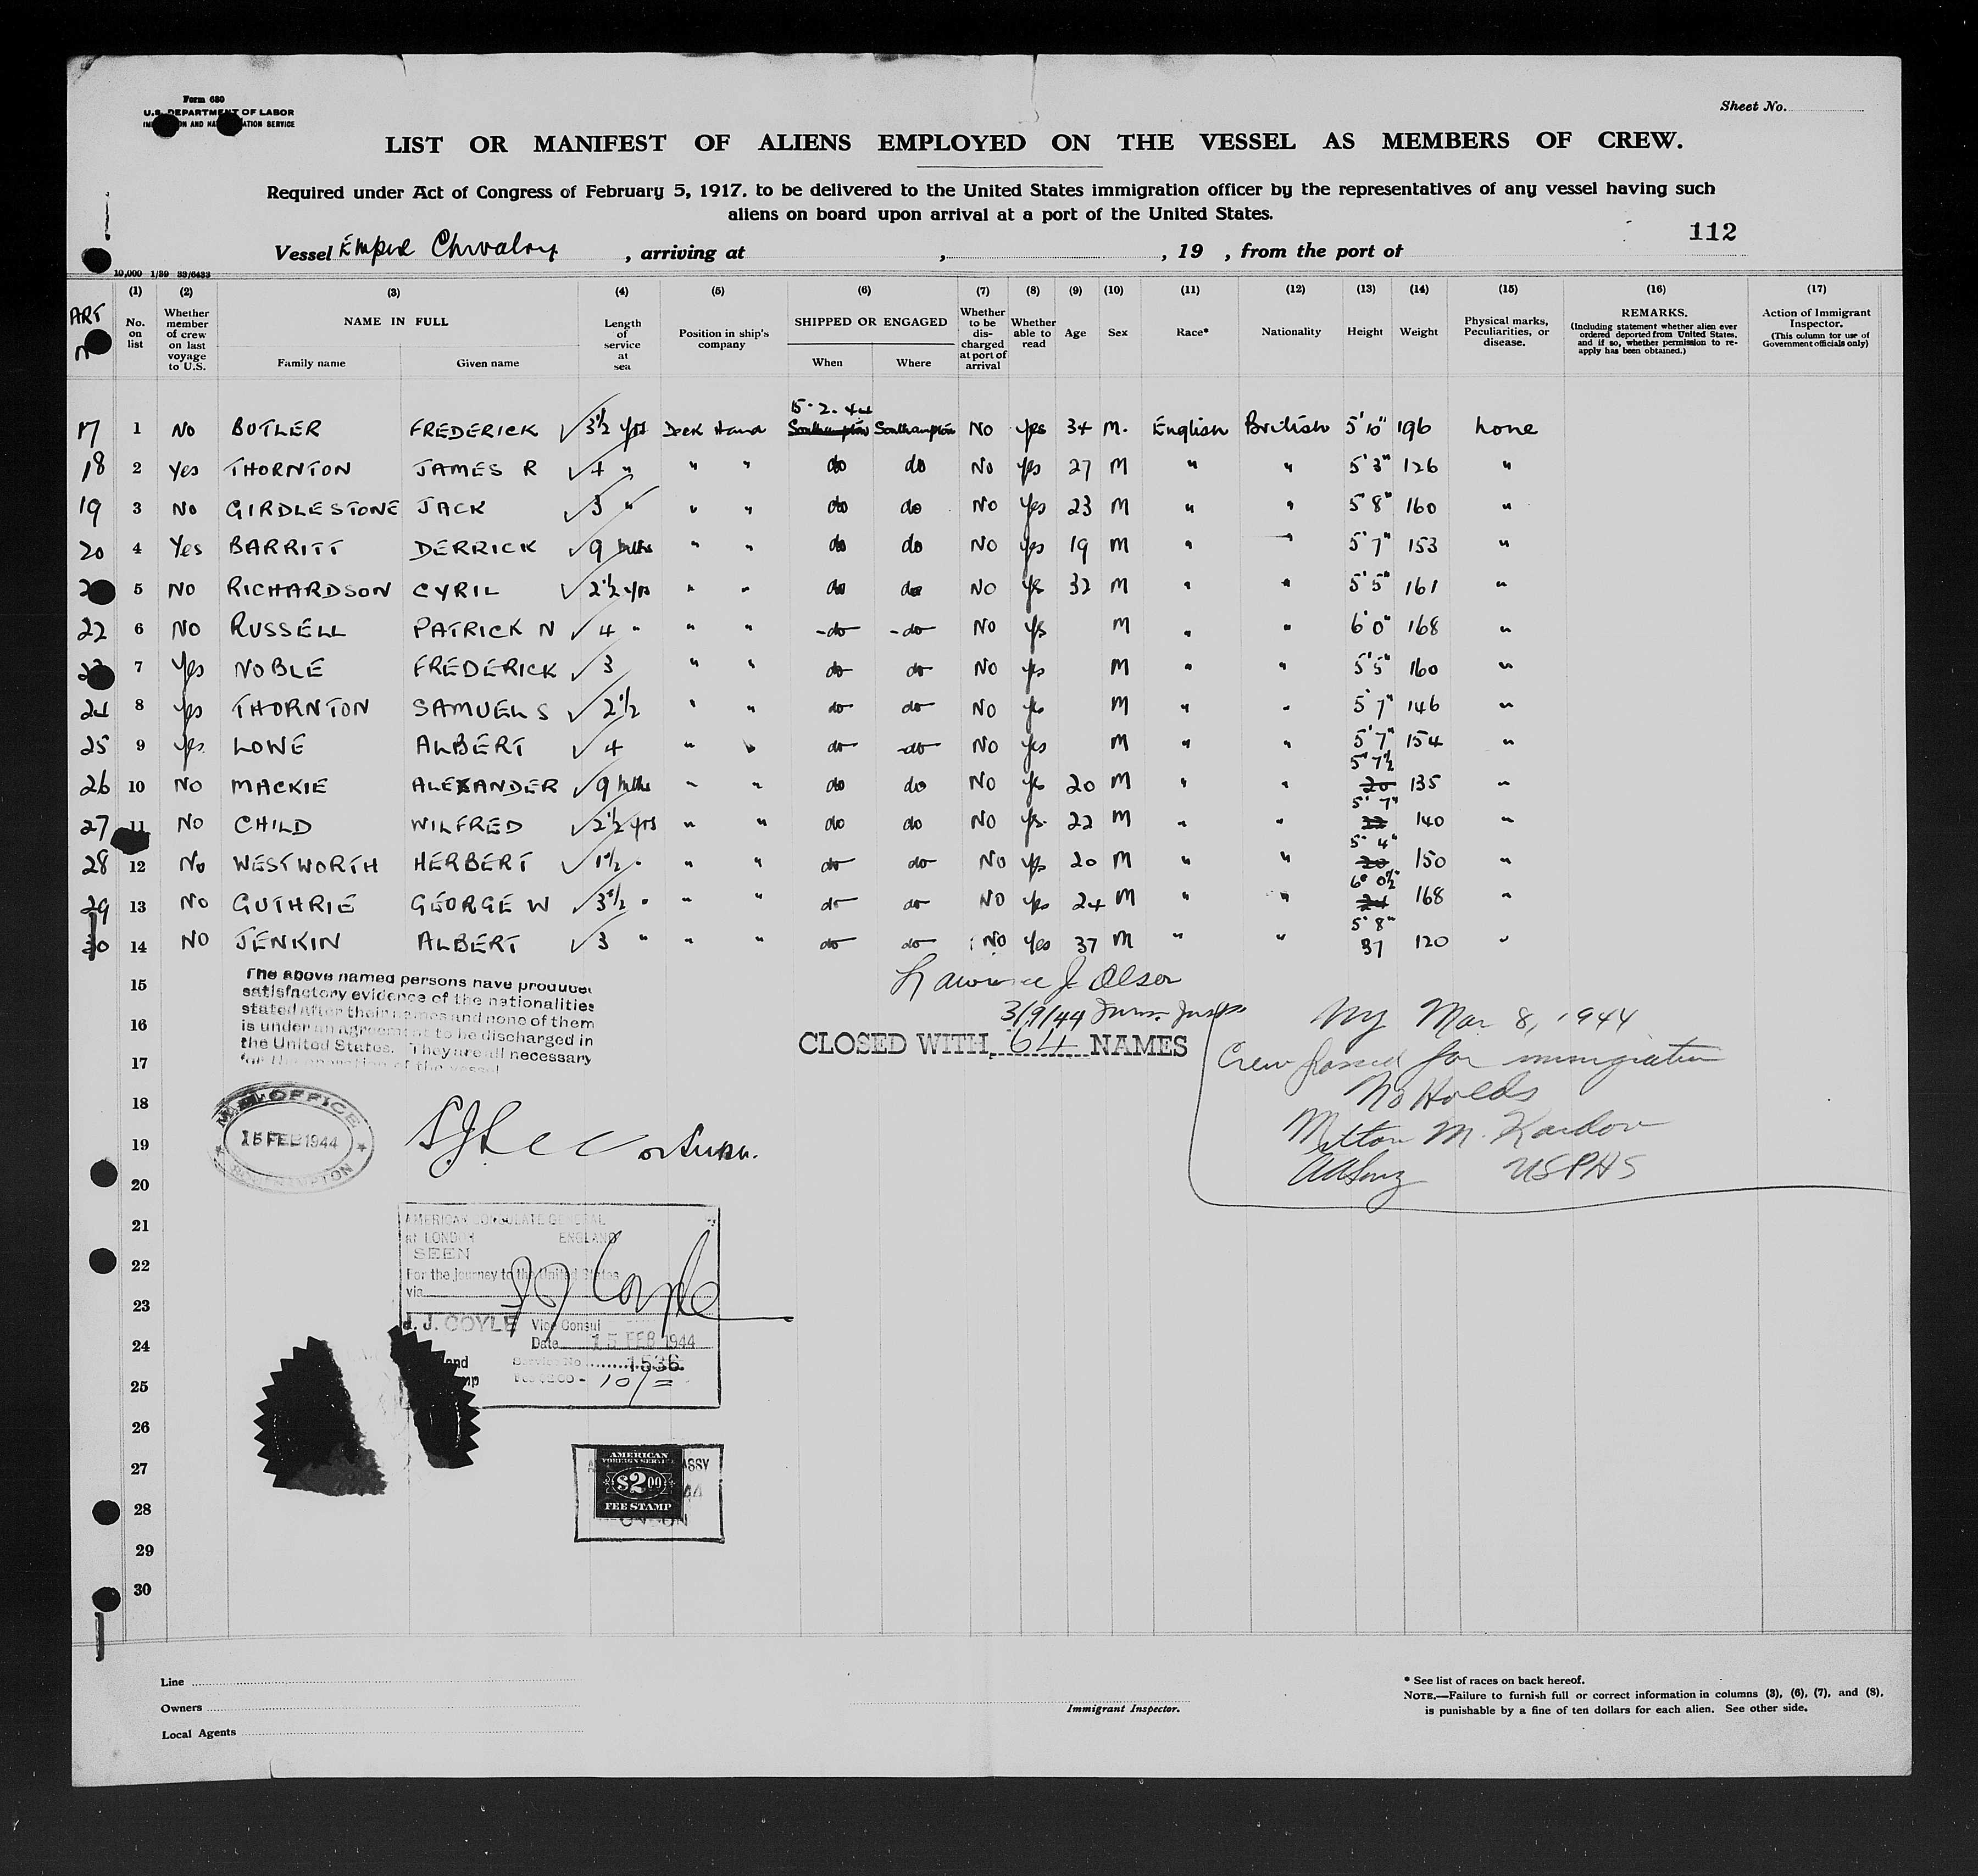 Form 680
U.S. DEPARTMENT OF LABOR
AND NATION SERVICE
Sheet No.
LIST OR MANIFEST OF ALIENS EMPLOYED ON THE VESSEL AS MEMBERS OF CREW.
Required under Act of Congress of February 5, 1917, to be delivered to the United States immigration officer by the representatives of any vessel having such
aliens on board upon arrival at a port of the United States.
112
Vessel Empire Chivalry, arriving at , , 19 , from the port of
10,000 1/39 33/6433
ART
(1) (2) (3) (4) (5) (6) (7) (8) (9) (10) (11) (12) (13) (14) (15) (16) (17)
No. on list
Whether member of crew on last voyage to U.S.
NAME IN FULL
Family name Given name
Length of service at sea
Position in ship's company
SHIPPED OR ENGAGED
When Where
Whether to be discharged at port of arrival
Whether able to read
Age
Sex
Race*
Nationality
Height
Weight
Physical marks, Peculiarities, or disease.
REMARKS.
(Including statement whether alien ever ordered deported from United States, and if so, whether permission to reapply has been obtained.)
Action of Immigrant Inspector.
(This column for use of Government officials only)
15.2.44
17 1 No BUTLER FREDERICK ✓ 3½ yrs Deck Hand Southampton Southampton No yes 34 M. English British 5'10" 196 None
18 2 Yes THORNTON JAMES R ✓ 4 " " " do do No yes 27 M " " 5'3" 126 "
19 3 No GIRDLESTONE JACK ✓ 3 " " " do do No Yes 23 M " " 5'8" 160 "
20 4 Yes BARRITT DERRICK ✓ 9 mths " " do do No yes 19 M " " 5'7" 153 "
2 5 No RICHARDSON CYRIL ✓ 2½ yrs " " do do No yes 32 M " " 5'5" 161 "
22 6 No RUSSELL PATRICK N ✓ 4 " " " do do No yes M " " 6'0" 168 "
23 7 Yes NOBLE FREDERICK ✓ 3 " " do do No yes M " " 5'5" 160 "
24 8 yes THORNTON SAMUEL S ✓ 2½ " " do do No yes M " " 5'7" 146 "
25 9 yes LOWE ALBERT ✓ 4 " " do do No yes M " " 5'7" 154 "
5'7½
26 10 No MACKIE ALEXANDER ✓ 9 mths " " do do No yes 20 M " " 20 135 "
5'7"
27 11 No CHILD WILFRED ✓ 2½ yrs " " do do No yes 22 M " " 22 140 "
5'4"
28 12 No WESTWORTH HERBERT ✓ 1½ " " " do do No yes 20 M " " 20 150 "
6'0½"
29 13 No GUTHRIE GEORGE W ✓ 3½ " " " do do No yes 24 M " " 24 168 "
5'8"
30 14 No JENKIN ALBERT ✓ 3 " " " do do No Yes 37 M " " 37 120 "
15
16
17
18
19
20
21
22
23
24
25
26
27
28
29
30
The above named persons have produced
satisfactory evidence of the nationalities
stated after their names and none of them
is under an agreement to be discharged in
the United States. They are all necessary
for the operation of the vessel
Lawrence J. Olsen
3/9/44
CLOSED WITH 64 NAMES
NY Mar 8, 1944
Crew passed for immigration
No Holds
Milton M.
USPHS
OFFICE
15 FEB 1944
AMERICAN CONSULATE GENERAL
at LONDON ENGLAND
SEEN
For the journey to the United States
via
J. J. Coyle
J. J. COYLE Vice Consul
Date 15 FEB 1944
Service No. 1536
10/=
AMERICAN
FOREIGN SERVICE
$2.00
FEE STAMP
Line
Owners
Local Agents
Immigrant Inspector.
* See list of races on back hereof.
NOTE.—Failure to furnish full or correct information in columns (3), (6), (7), and (8),
is punishable by a fine of ten dollars for each alien. See other side.